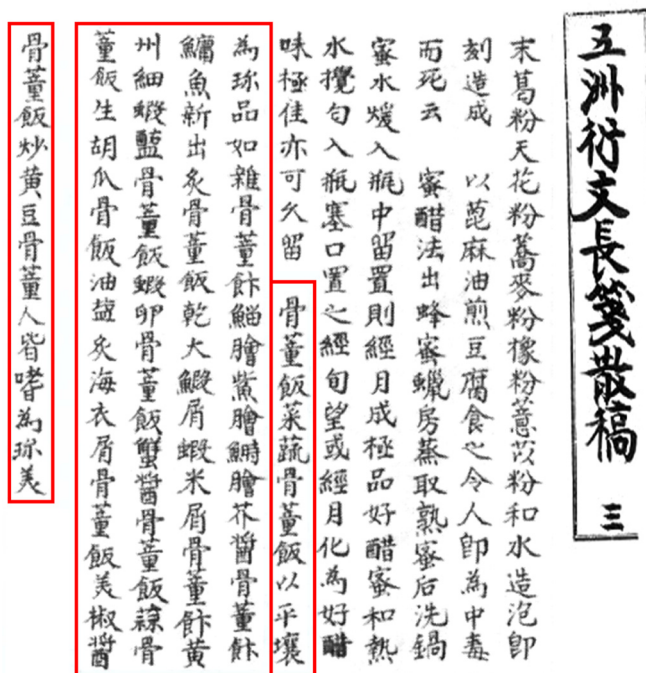 五洲衍文長箋散稿 三
末葛粉天花粉蕎麥粉橡粉薏苡粉和水造泡卽
刻造成 以蓖麻油煎豆腐食之令人卽為中毒
而死云 蜜醋法出蜂蜜蠟房蒸取熟蜜后洗鍋
蜜水煖入瓶中留置則經月成極品好醋蜜和熱
水攪匀入瓶塞口置之經旬望或經月化為好醋
味極佳亦可久留 骨董飯菜蔬骨董飯以平壤
為珎品如雜骨董飰鯔膾鮆膾鰣膾芥醬骨董飰
鱅魚新出炙骨董飯乾大鰕屑蝦米屑骨董飰黄
州細蝦䀋骨董飯蝦卵骨董飯蟹醬骨董飯蒜骨
董飯生胡瓜骨飯油塩炙海衣屑骨董飯美椒醬
骨董飯炒黄豆骨董人皆嗜為珎美